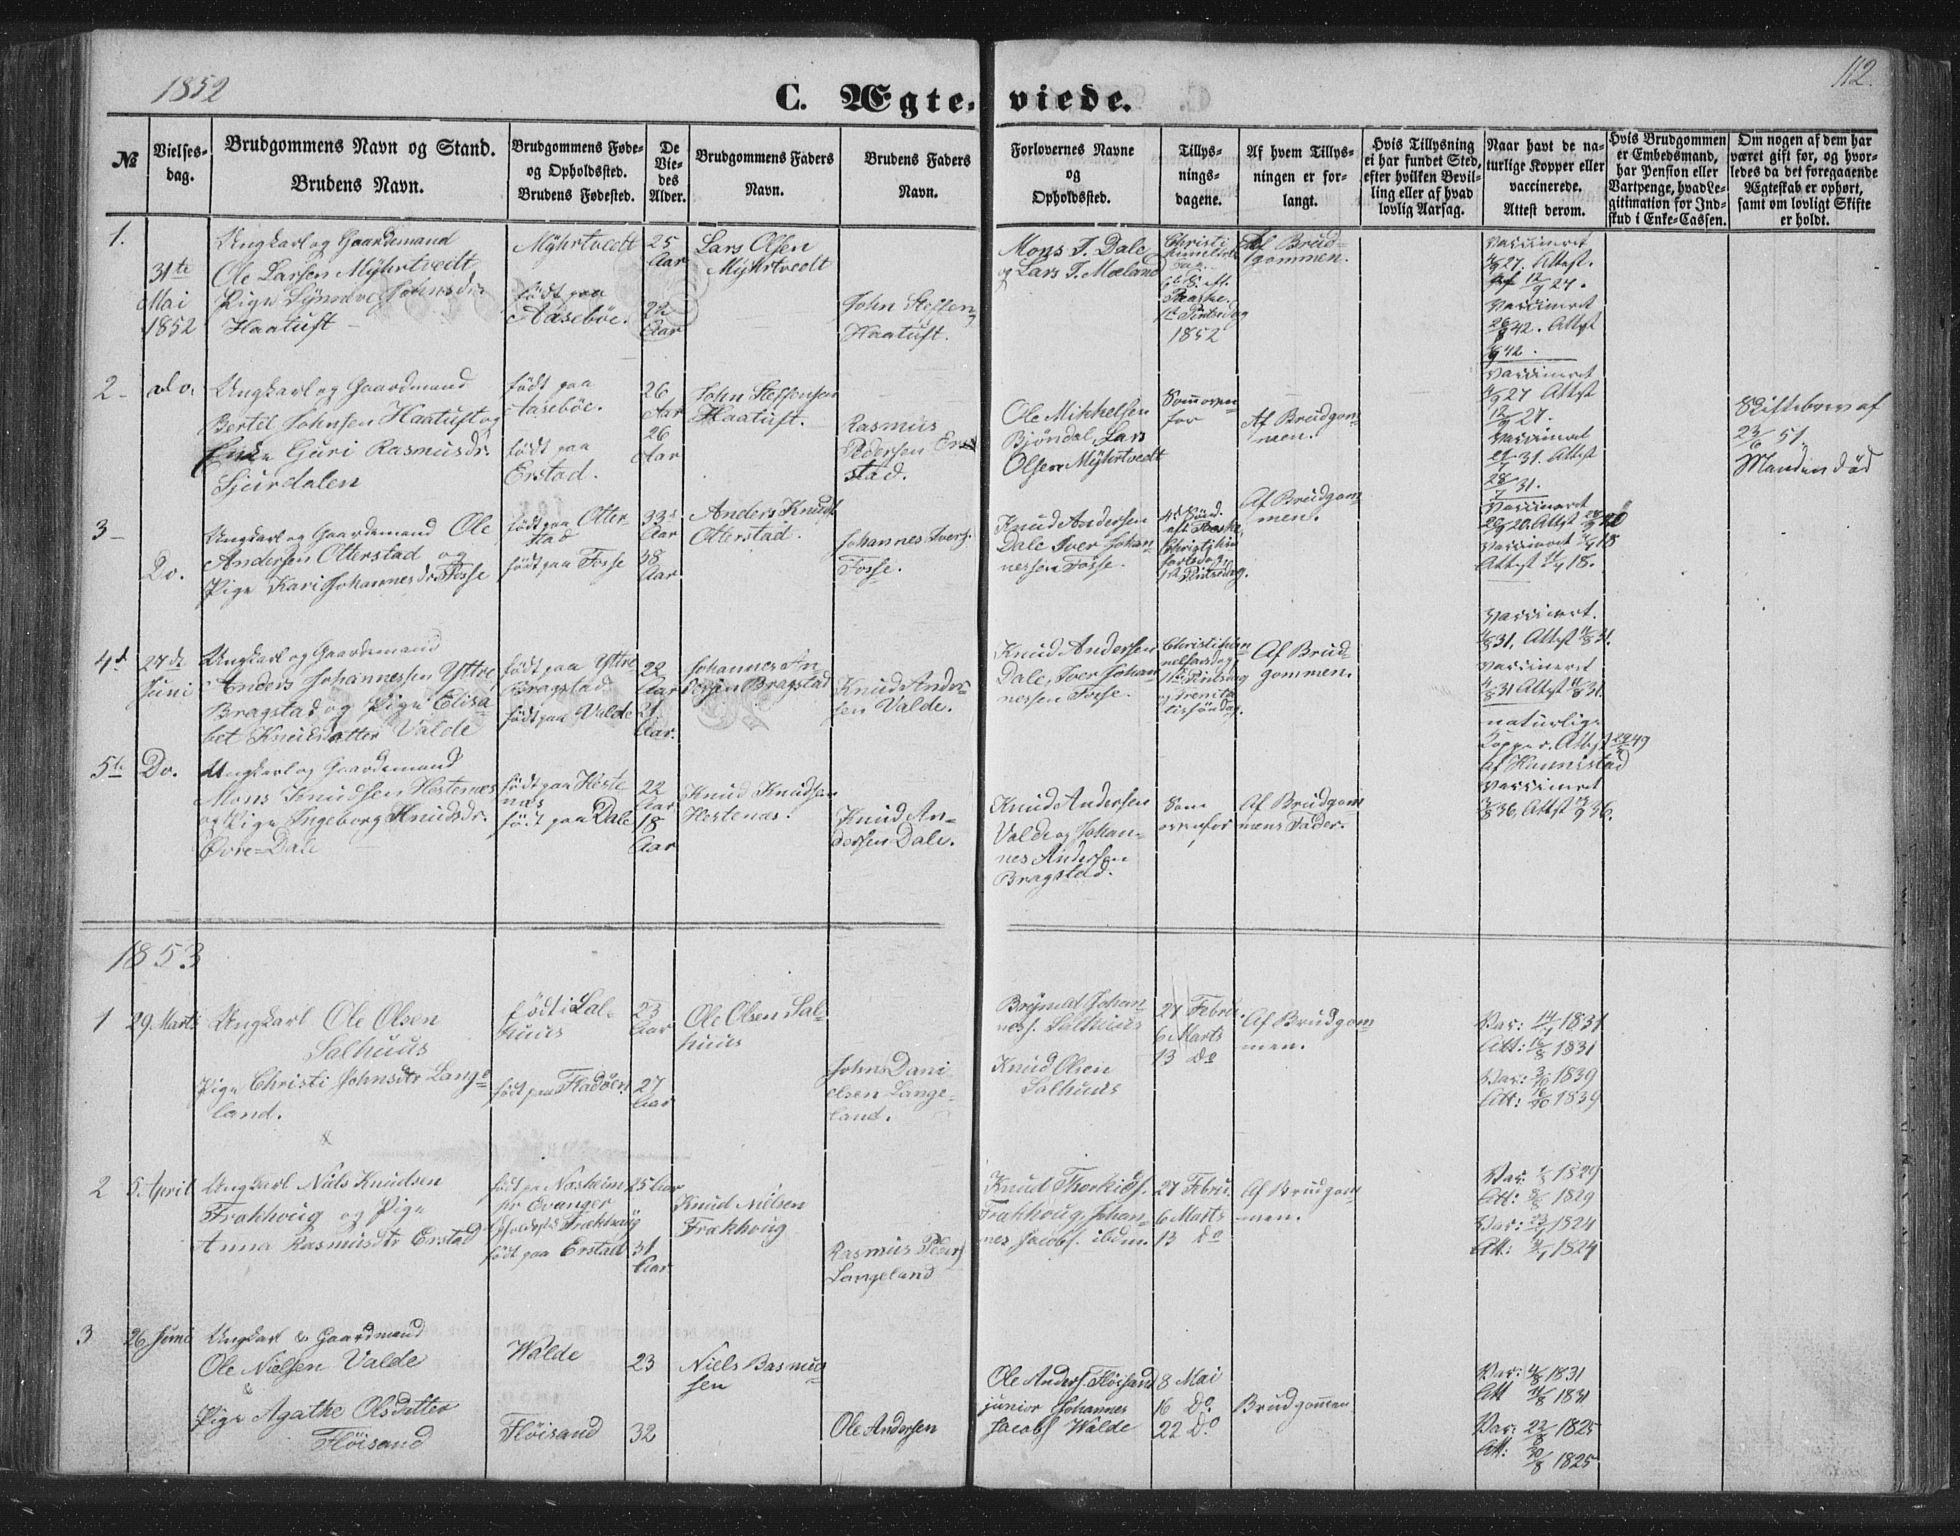 1852
112.
C. Ægte-viede.
№
Vielses-
dag.
Brudgommens Navn og Stand.
Brudens Navn.
Brudgommens Føde-
og Opholdssted.
Brudens Fødested.
De
Vie-
des
Alder.
Brudgommens Faders
Navn.
Brudens Faders
Navn.
Forlovernes Navne
og
Opholdssted.
Tillys-
nings-
dagene.
Af hvem Tillys-
ningen er for-
langt.
Hvis Tillysning
ei har fundet Sted,
efter hvilken Bevil-
ling eller af hvad
lovlig Aarsag.
Naar havt de na-
turlige Kopper eller
vaccinerede.
Attest derom.
Hvis Brudgommen
er Embedsmand,
har Pension eller
Vartpenge, hvad Le-
gitimation for Ind-
skud i Enke-Cassen.
Om nogen af dem har
været gift før, og hvor-
ledes da det foregaaende
Ægteskab er ophørt,
samt om lovligt Skifte
er holdt.
1.
31te
Mai
1852
Ungkarl og Gaardemand
Ole Larsen Myhrtvedt
Pige Synneve Johnsdr.
Haatuft
Myhrtvedt
født paa
Aasebøe.
25
Aar
22
Aar
Lars Olsen
Myhrtvedt
John Steffen
Haatuft.
Mons T. Dale
og Lars T. Mæland
Christi
6te S. eft.
Paaske
1ste Pintsedag
1852
Af Brud-
gommen.
vaccineret
27. Attest
12/9 27.
Vaccineret
26/8 42. Attest
42.
2
do.
Ungkarl og Gaardmand
Bertel Johnsen Haatuft og
Enke Guri Rasmusdr.
Sjurdalen
født paa
Aasebøe.
født paa
Erstad.
26
Aar
26
Aar
John Steffensen
Haatuft.
Rasmus
Pedersen Er-
stad.
Ole Mikkelsen
Bjøndal, Lars
Olsen Myhrtvedt
Som oven-
for
Af Brudgom-
men.
vaccineret
27 Attest
12/9 27.
Vaccineret
31. Attest
28/7 31.
Skiftebrev af
23/6 51
Manden død
3
Do.
Ungkarl og Gaardemand Ole
Andersen Otterstad og
Pige Kari Johannesdr. Fosse
født paa Otter-
stad
født paa Fosse
33
Aar
38
Aar
Anders Knuds.
Otterstad.
Johannes Ivers.
Fosse.
Knud Andersen
Dale Iver Johan-
nessen Fosse.
4de Sønd.
eft. Paaske,
Christi him-
fartsdag,
1ste Pintsedag.
Af Brudgom-
men.
Vaccineret
20. Attest
Vaccineret 18
Attest 18.
4de
27de
Juni
Ungkarl og Gaardemand
Anders Johannessen Yttre
Bragstad og Pige Elisa-
bet Knudsdatter Valde
født paa Yttre
Bragstad
født paa Valde
22
Aar
21
Aar.
Johannes An-
dersen Bragstad
Knud Ander-
sen Valde.
Knud Andersen
Dale, Iver Johan-
nessen Fosse.
Christi him-
melfartsdag,
1ste Pintsedag
og Trenita-
tissøndag.
Af Brud-
gommen.
Vaccineret.
31. Attest 31.
Vaccineret
31 Attest 31.
5te
Do.
Ungkarl og Gaardemand
Mons Knudsen Hostenæs
og Pige Ingeborg Knudsdr.
Øvre-Dale
født paa Hoste
næs
født paa Dale
22
Aar
18
Aar
Knud Knudsen
Hostenæs.
Knud An-
dersen Dale.
Knud Andersen
Valde og Johan-
nes Andersen
Bragstad.
Som
ovenfor
Af Brudgom
mens Fader.
naturlige
Kopper. Attest 49
Vaccineret
36, Attest 36.
1853
1
29 Marts
Ungkarl Ole Olsen
Salhuus
Pige Christi Johnsdtr Lange-
land.
født i Sal-
huus
født paa Fladøen
23
Aar
27
Aar
Ole Olsen Sal-
huus
John Dani-
elsen Lange-
land.
Brynild Johan-
ness. Salhuus
Knud Olsen
Salhuus
27 Febru.
6 Marts
13 Do
Af Brudgom-
men.
Vac: 14/7 1831
Att: 16/8 1831
Vac: 1839
Att: 1839
2
5 April
Ungkarl Niels Knudsen
Frækhoug og Pige
Anna Rasmusdtr Erstad
født paa Næsheim
pr Evanger
Opholdssted Frækhaug
født paa Erstad
25 Aar
31
Aar
Knud Nielsen
Frækhoug
Rasmus Peders.
Langeland
Knud Thorkilds.
Frækhoug, Johan-
nes Jacobs. ibdm.
27 Febru.
6 Marts
13 Do
Af Brudgom-
men.
Vac: 1829
Att: 1829
Vac: 1824
Att: 1824
3
26 Juni
Ungkarl & Gaardmand
Ole Nielsen Valde
&
Pige Agathe Olsdatter
Fløisand
Walde
Fløisand
23
32
Niels Rasmus-
sen
Ole Andersen
Ole Anders. Fløisand
junior Johannes
Jacobs. Walde
8 Mai
16 Do
22 Do
Brudgommen
Vac: 1831
Att 1831
Vac: 22/8 1825
Att: 30/8 1825